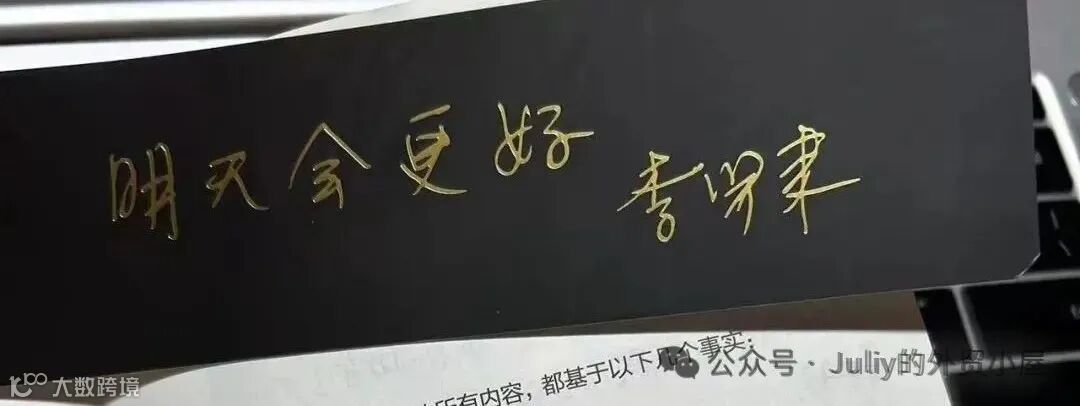 明天会更好
李笑来
所有内容，都基于以下几个事实：
公众号 · Juliy的外贸小屋
大数跨境